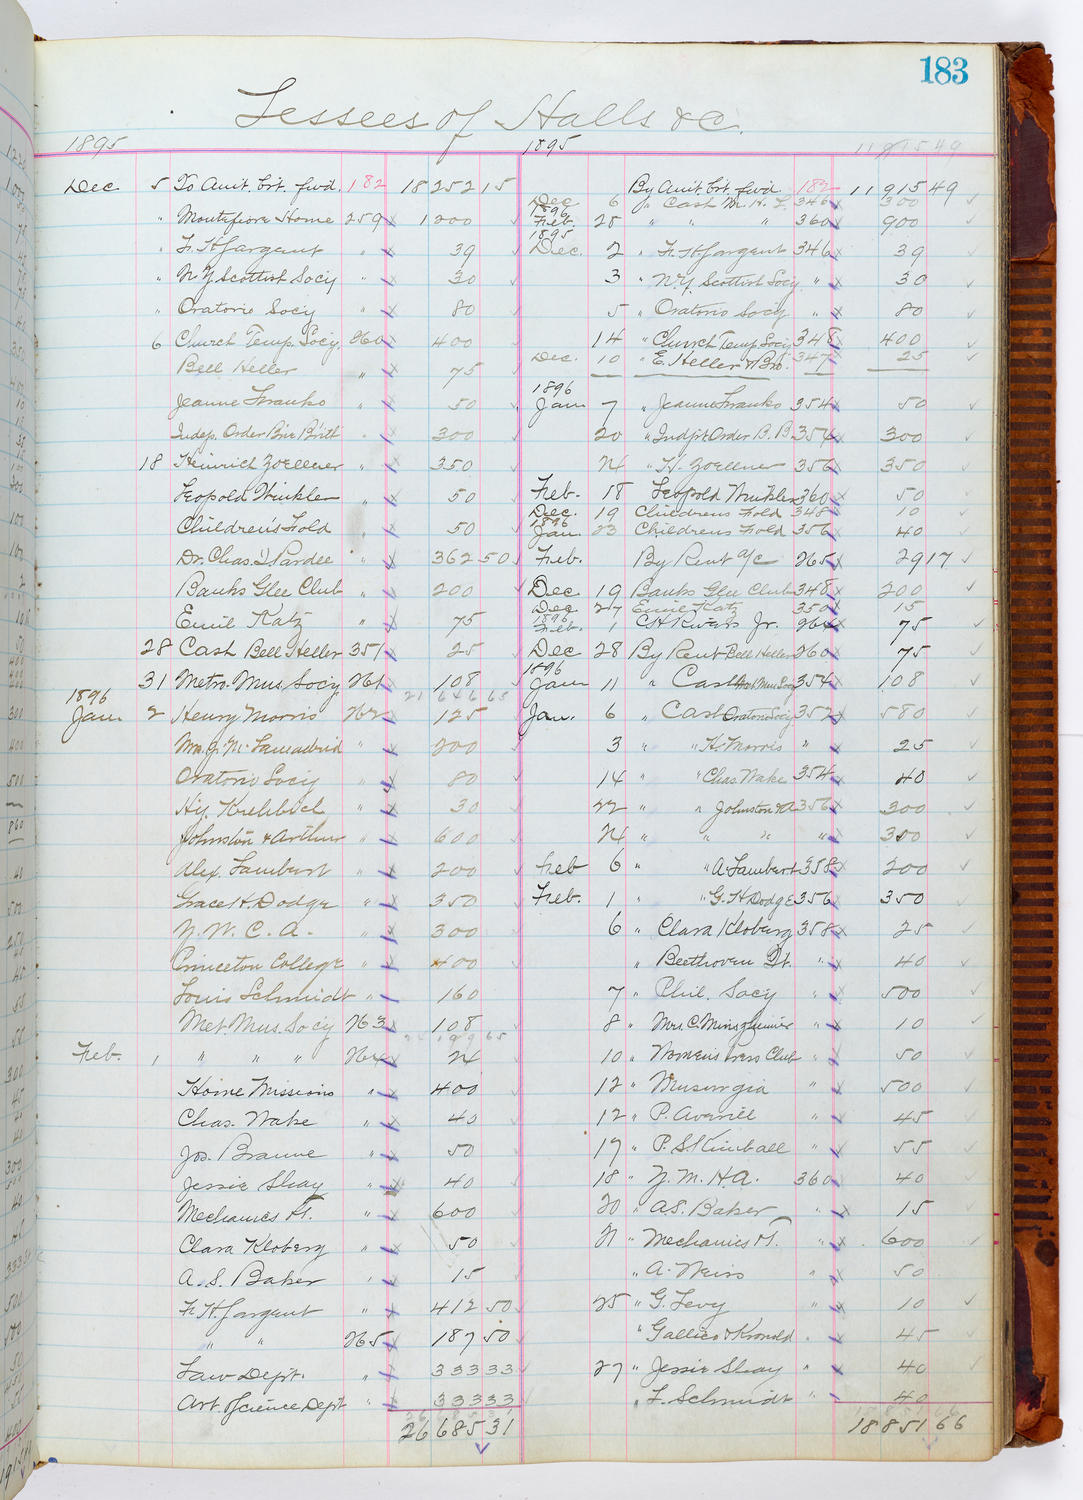 183
Lessees of Halls &c.
1895
1895
11915 49
Dec 5 To Amt. brt. fwd. 182 18252 15
" Montefiore Home 259 1200
" F. H. Sargent " 39
" N.Y. Scottish Socy " 30
" Oratorio Socy " 80
6 Church Temp. Socy. 260 400
Bell Heller " 75
Jeanne Franko 50
Indep. Order Bnie Brith " 300
18 Heinrich Zoellner " 350
Leopold Winkler " 50
Children's Fold " 50
Dr. Chas. I. Pardee " 362 50
Banks Glee Club " 200
Emil Katz " 75
28 Cash Bell Heller 351 25
31 Metro. Mus. Socy 261 108
21 646 65
1896
Jan. 2 Henry Morris 262 125
" 200
Oratorio Socy " 80
Hy. Krehbiel " 30
Johnston & Arthur " 600
Alex. Lambert " 200
Grace H. Dodge " 350
Y.W.C.A. " 300
Princeton College " 400
Louis Schmidt " 160
Met Mus. Socy 263 108
Feb. 1 " " " 264 24
Home Missions " 400
Chas. Wake " 40
Jos. Braune " 50
Jessie Shay " 40
Mechanics Bk. " 600
Clara Kloberg " 50
A. S. Baker " 15
F. H. Sargent " 412 50
" " 265 187 50
Law Dept. " 333 33
Art. Science Dept " 333 33
26685 31
By Amt. brt. fwd. 182 11915 49
Dec 6 " Cash M. H. 346 300
1896
Feb. 25 " " " 360 900
1895
Dec. 2 " F. H. Sargent 346 39
3 " N.Y. Scottish Socy " 30
5 " Oratorio Socy " 80
14 " Church Temp Socy 348 400
Dec. 10 " E. Heller & Bro. 347 25
1896
Jan 7 " Jeanne Franko 354 50
20 " Indpt Order B. B. 354 300
24 " H. Zoellner 356 350
Feb. 18 Leopold Winkler 360 50
Dec. 19 Childrens Fold 348 10
1896
Jan. 23 Childrens Fold 356 40
Feb. By Rent a/c 265 29 17
Dec 19 Banks Glee Club 348 200
Dec 27 Emil Katz 350 15
1896
Feb. 1 C H Rivers Jr. 264 75
Dec 28 By Rent Bell Heller 260 75
1896
Jan 11 " Cash Met Mus Socy 354 108
Jan. 6 " Cash Oratorio Socy 352 580
3 " " H. Morris " 25
14 " " Chas Wake 354 40
22 " " Johnston & A 356 300
24 " " " " 300
Feb 6 " " A. Lambert 358 200
Feb. 1 " " G. H. Dodge 356 350
6 " Clara Kloberg 358 25
" Beethoven Qt. " 40
7 " Phil. Socy " 500
8 " Mrs. C. " 10
10 " Women's Press Club " 50
12 " Musurgia " 500
12 " P. Averill " 45
17 " P. S. Kimball " 55
18 " Y.M.H.A. 360 40
20 " A.S. Baker " 15
21 " Mechanics Bk. " 600
" A. Weiss " 50
25 " G. Levy " 10
" Gallico & Kronold " 45
27 " Jessie Shay " 40
" F. Schmidt " 40
18851 66